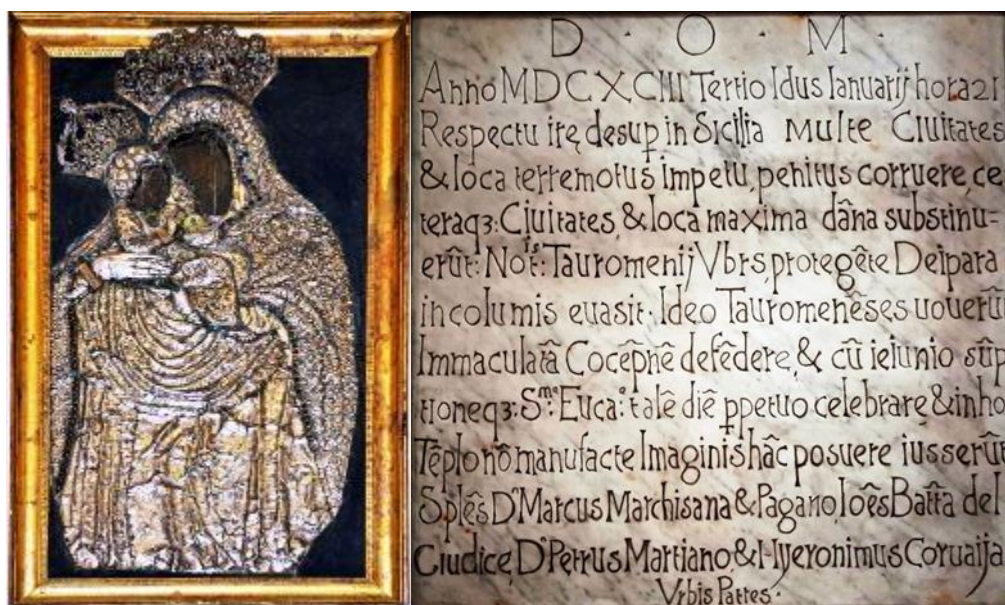 D · O · M ·
Anno MDCXCIII Tertio Idus Ianuarij hora 21
Respectu irę desup in Sicilia Multe Ciuitates
& loca terremotus impetu, penitus corruere, ce
teraqȝ: Ciuitates, & loca maxima dâna substinu=
erût: No:ⁱˢt: Tauromenij Vbrs, protegête Deipara
incolumis euasit · Ideo Tauromenêses uouerû
Immaculatâ Cocêpnê defêdere, & cû ieiunio sûp
tioneqȝ: S.ᵐᵉ Euca:ᵉ talê diê ppetuo celebrare & inho
Têplo nô manufacte Imaginis hâc posuere iusserût
Splês D.ʳ Marcus Marchisana & Pagano, Ioês Batta del
Giudice, D.ʳ Petrus Martiano, & Hyeronimus Coruaija
Vrbis Patres ·